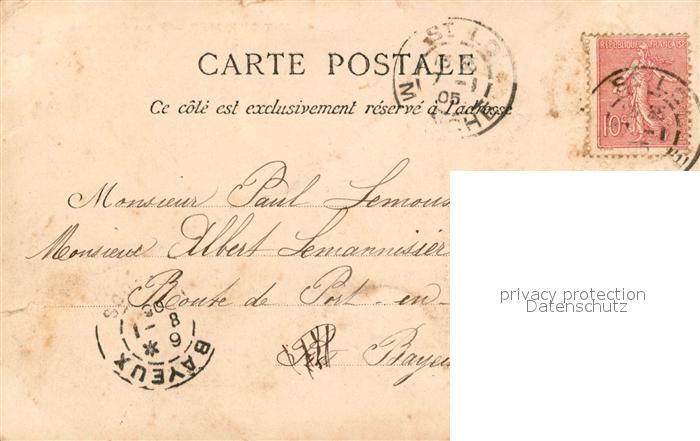 CARTE POSTALE
Ce côté est exclusivement réservé à l'adresse
ST LO
05
MANCHE
REPUBLIQUE FRANÇAISE
10c
Monsieur Paul
Monsieur Albert Lemannissier
Route de Port-en-
BAYEUX
privacy protection
Datenschutz